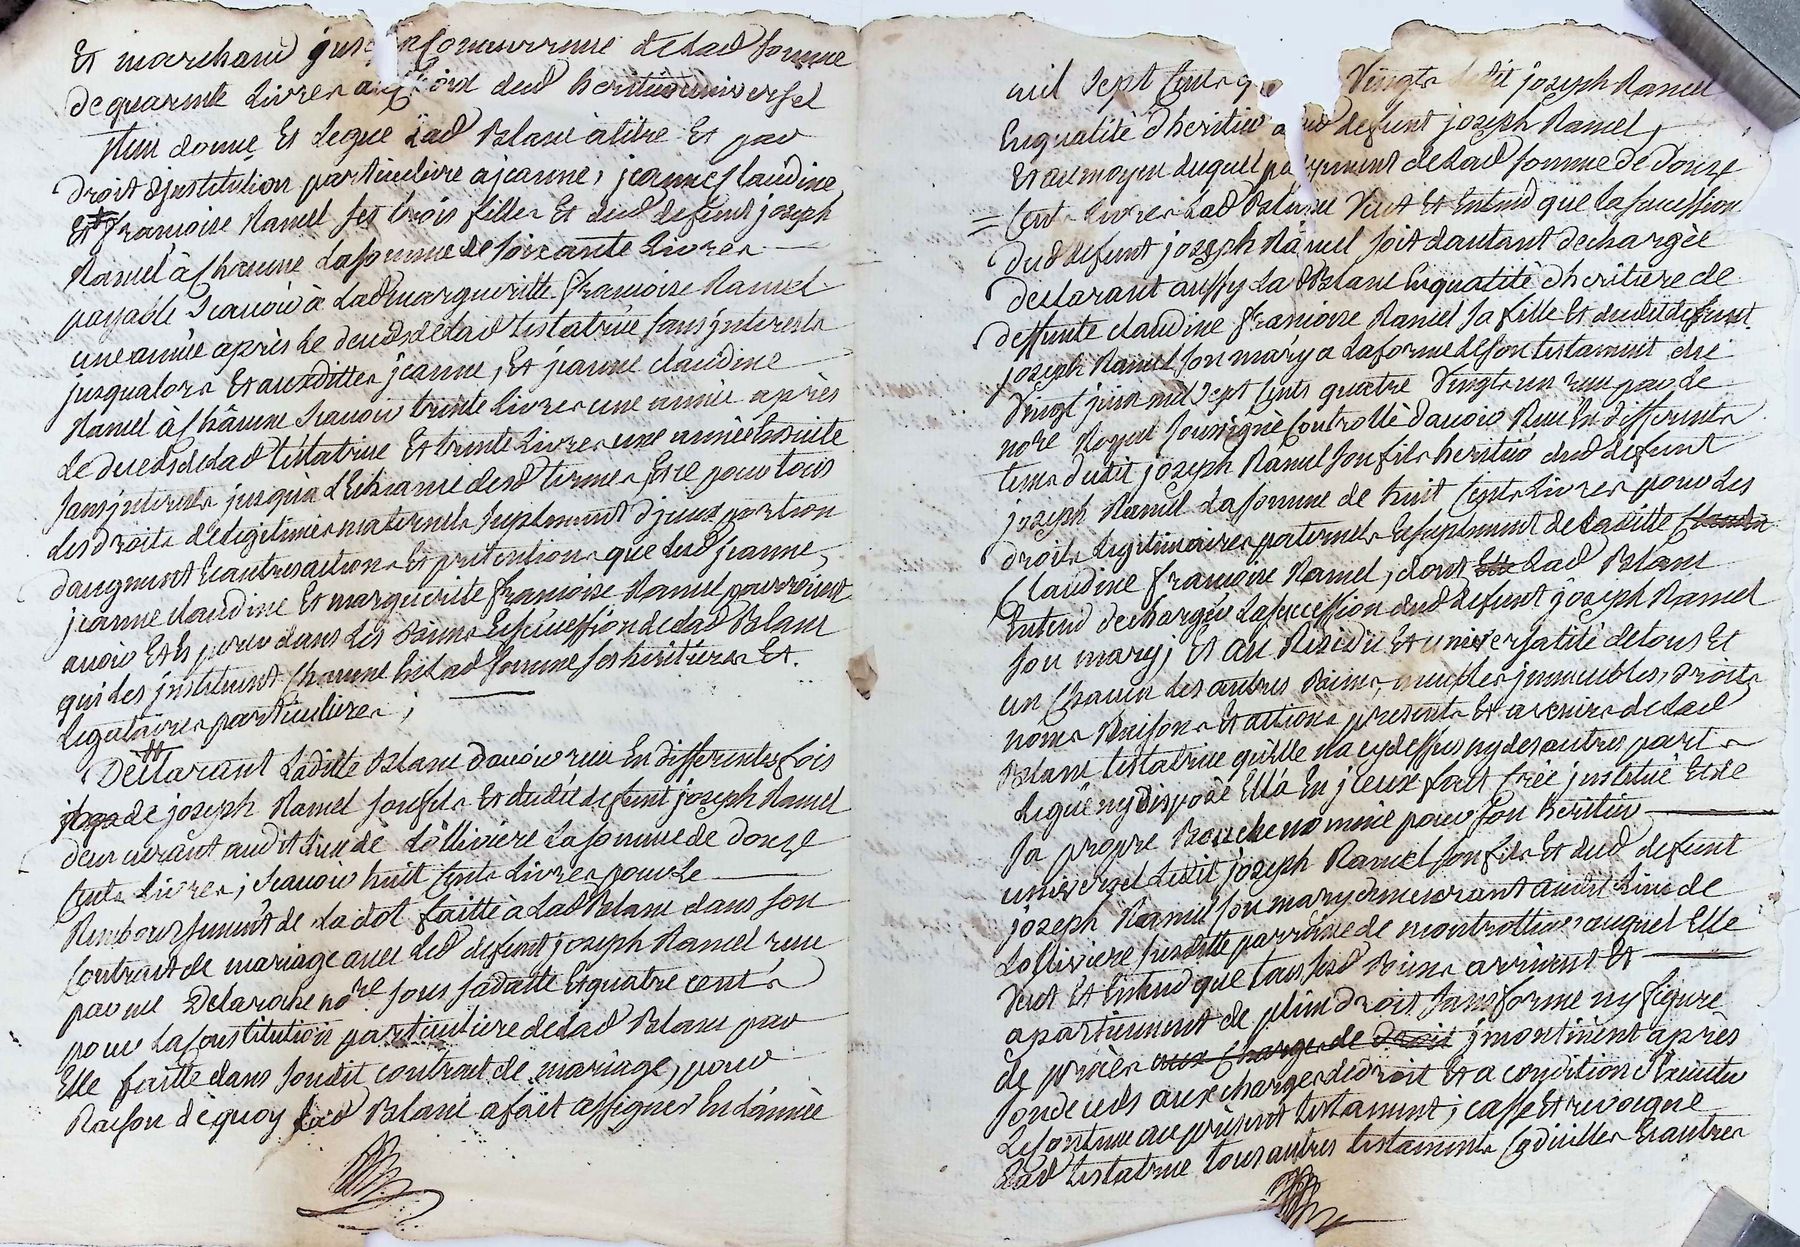 Et marchand jusq concurrence de lad somme
de quarante Livres au choix dud heritier universel
Item donne Et Legue Lad Blanc à titre Et par
droit djnstitution particuliere a jeanne, jeanne Claudine
Et françoise Ramel ses trois filles Et dud defunt joseph
Ramel à Chacune La somme de soixante Livres
payable scavoir à Lad margueritte françoise Ramel
une année après Le deceds de Lad testatrice sans jnterests
jusqualors Et auxdittes jeanne, Et jeanne claudine
Ramel à Châcune scavoir trente Livres une année après
Le deceds de Lad testatrice Et trente Livres une année Ensuite
sans jnterests jusqua L'Echeance desd termes, Et ce pour tous
Les droits de Legitimes maternels suplement djceux portion
daugment Et autres actions Et pretentions que Lesd jeanne,
jeanne claudine Et marguerite françoise Ramel pourroient
avoir Et Esperer dans Les Biens Et succession de Lad Blanc
qui Les jnstituent Chacune En Lad somme ses heritieres Et
Legataires particulieres;
Declarant Laditte Blanc davoir reçu En differentes fois
de joseph Ramel son fils Et dudit defunt joseph Ramel
demeurant audit Lieu de Lollivière La somme de douze
Cents Livres; scavoir huit Cents Livres pour Le
Remboursement de La dot faitte à Lad Blanc dans son
Contrat de mariage avec Led defunt joseph Ramel reçu
par me Delaroche nore sous sa datte Et quatre cents
pour La Constitution particuliere de Lad Blanc par
Elle faitte dans sondit contrat de mariage, pour
Raison de quoy Lad Blanc a fait assigner En L'année
mil sept Cents q Vingts Ledit joseph Ramel
En qualité d'heritier dud defunt joseph Ramel,
Et au moyen duquel payement de Lad somme de douze
Cents Livres Lad Blanc Veut Et Entend que La succession
dud defunt joseph Ramel soit dautant dechargée
declarant aussy Lad Blanc En qualité d'heritiere de
deffunte claudine françoise Ramel sa fille Et dudit defunt
joseph Ramel son mary a La forme de son testament du
Vingt juin mil sept Cents quatre Vingt un reçu par Le
nore Royal soussigné Controllé davoir Reçu En differents
tems dudit joseph Ramel son fils heritier dud defunt
joseph Ramel La somme de huit Cents Livres pour Les
droits Legitimaires paternels Et suplement de Laditte Claudin
Claudine françoise Ramel, dont Elle Lad Blanc
Entend decharger La succession dud defunt joseph Ramel
son mary; Et au Residu Et universalité de tous Et
un Chacun Les autres Biens, meubles jmmeubles, droits
noms Raisons Et actions presents Et avenirs de Lad
Blanc testatrice qu'elle n'a cy dessus ny des autres parts
Legué ny disposé Ella En jceux fait créé jnstitué Et de
sa propre Bouche nommé pour son heritier
universel Ledit joseph Ramel son fils Et dud defunt
joseph Ramel son mary demeurant audit Lieu de
Lollivière susditte parroisse de montrottier auquel Elle
Veut Et Entend que tous sesd Biens arrivent Et
apartiennent de plein droit sans forme ny figure
de procès aux charges de Droit jmontinent après
son deceds aux charges de droit Et a condition d'Executer
Le contenu au present testament; casse Et revoque
Lad testatrice tous autres testaments Codicilles Et autres